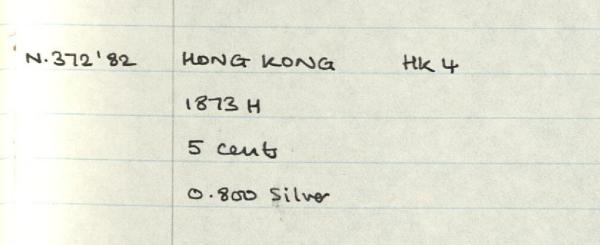 N.372'82 HONG KONG HK 4
1873 H
5 cents
0.800 Silver